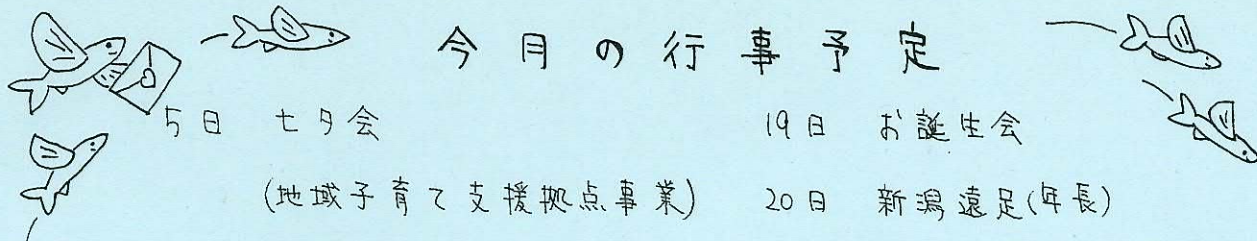 今月の行事予定
5日 七夕会
(地域子育て支援拠点事業)
19日 お誕生会
20日 新潟遠足(年長)